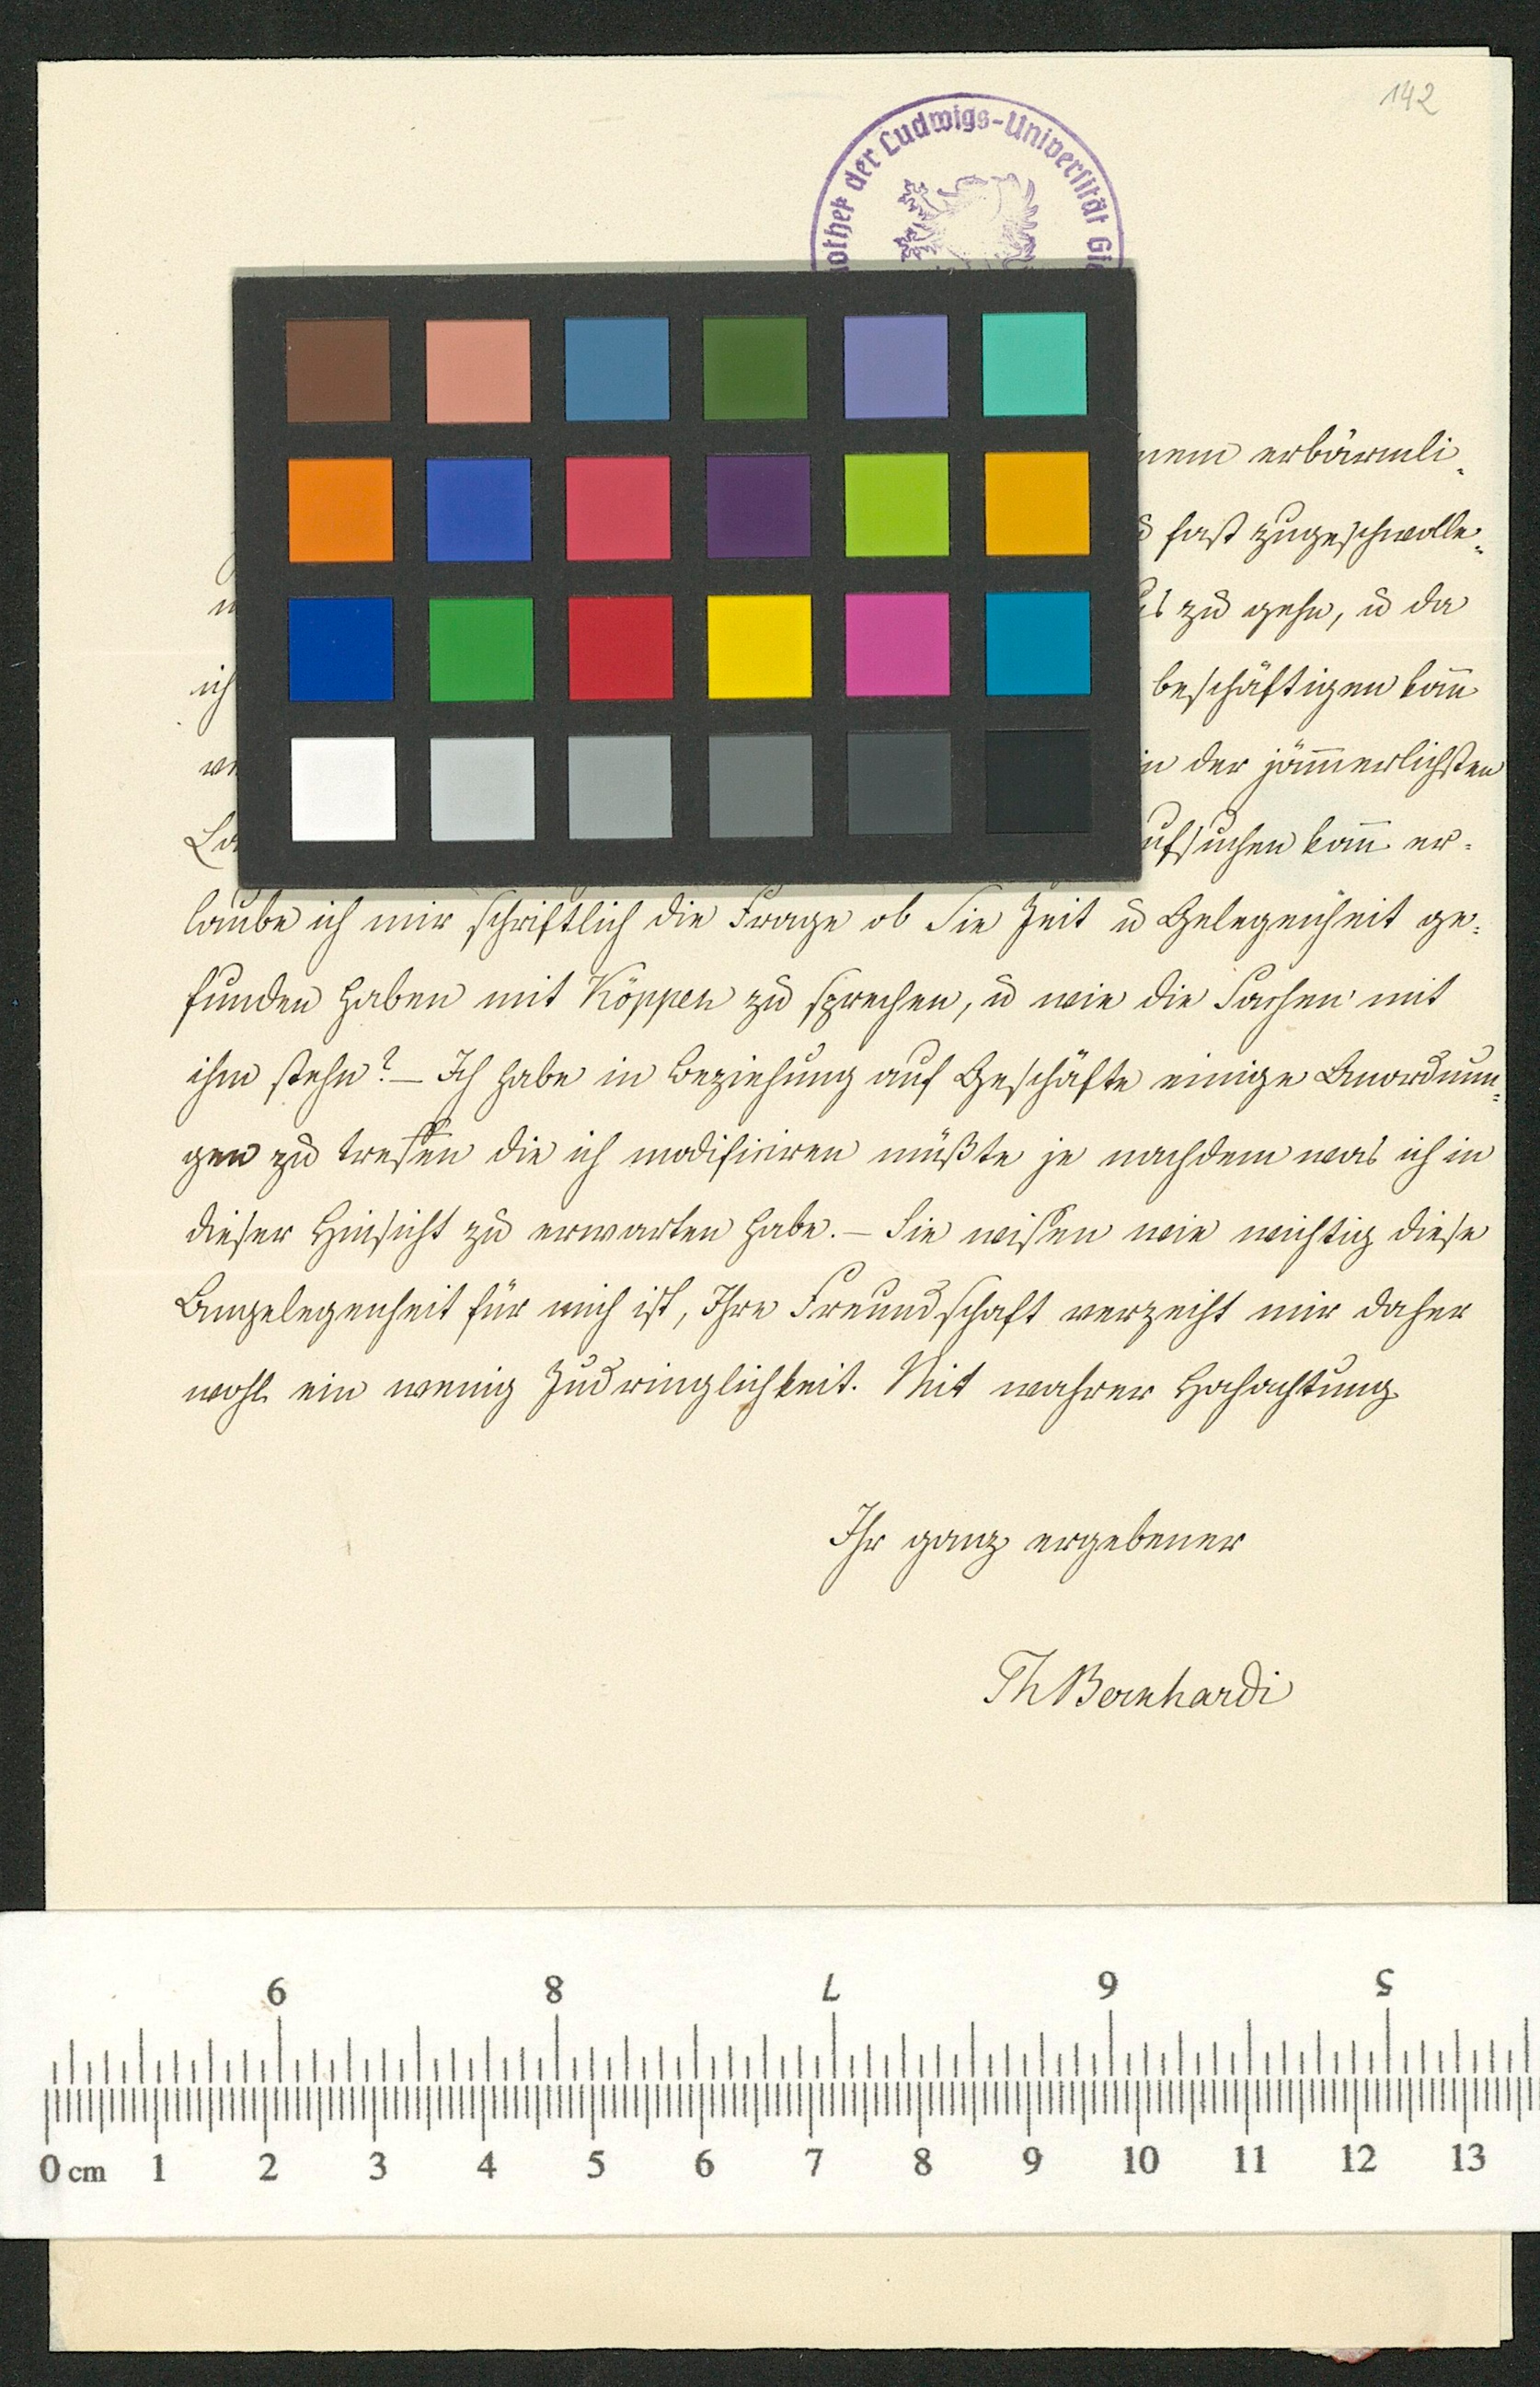 142
der Ludwigs-Universität
erbärmli-
fast zugeschwolle-
zu gehn, u da
ich
beschäftigen kann
in der jämmerlichsten
kann er-
laube ich mir schriftlich die Frage ob Sie Zeit u Gelegenheit ge-
funden haben mit Köppen zu sprechen, u wie die Sachen mit
ihm stehn? – Ich habe in Beziehung auf Geschäfte einige Anordnun-
gen zu treffen die ich modificiren müßte je nachdem was ich in
dieser Hinsicht zu erwarten habe. – Sie wissen wie wichtig diese
Angelegenheit für mich ist, Ihre Freundschaft verzeiht mir daher
wohl ein wenig Zudringlichkeit. Mit wahrer Hochachtung
Ihr ganz ergebener
Th Bernhardi
9 8 7 6 5
0 cm 1 2 3 4 5 6 7 8 9 10 11 12 13